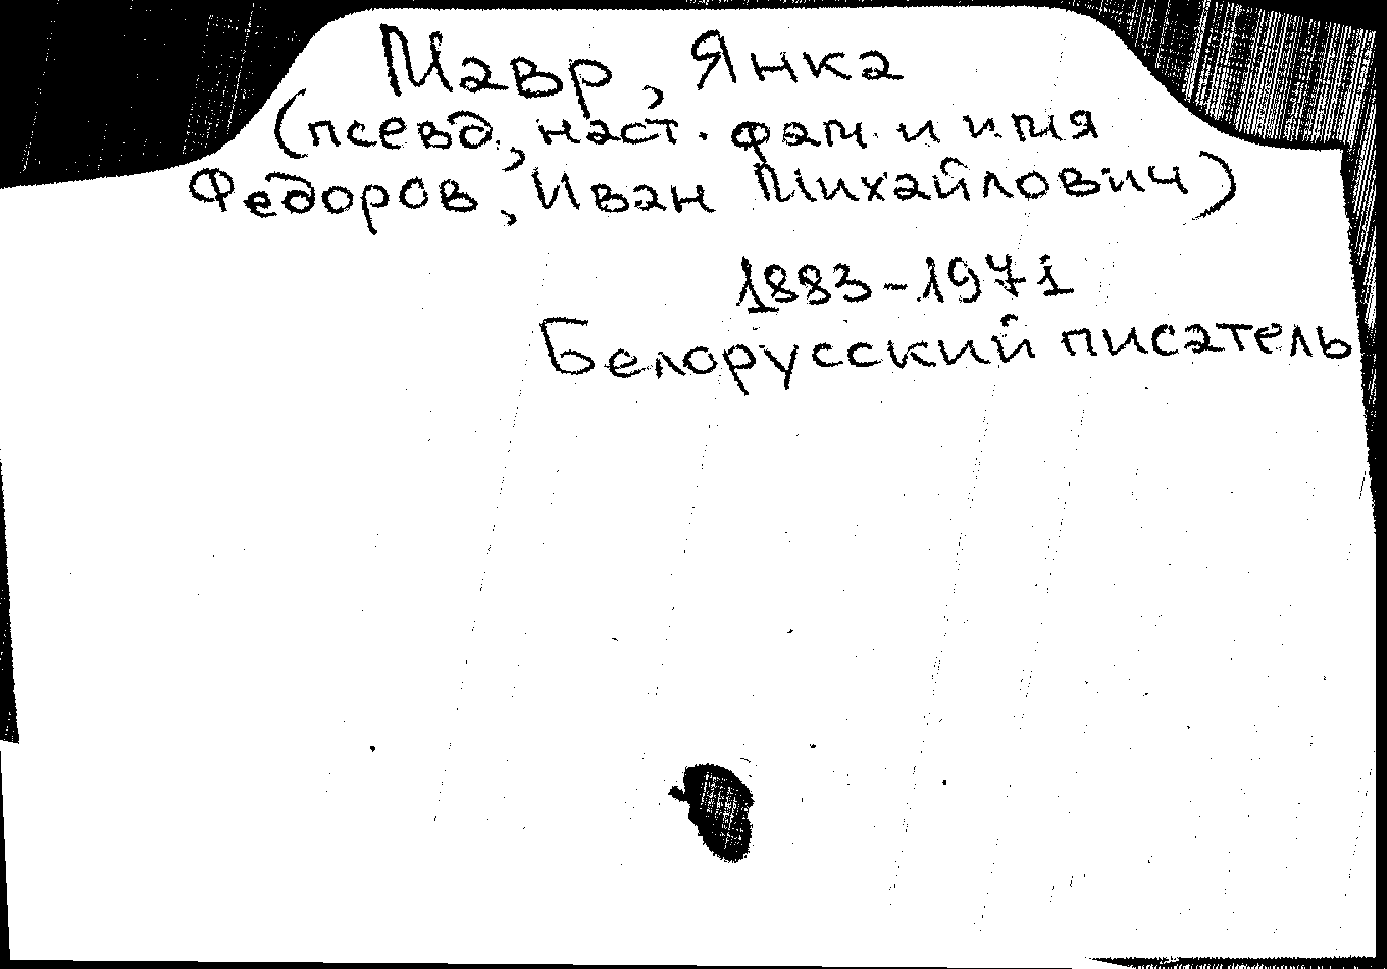 Мавр, Янка
(псевд., наст. фам. и имя
Федоров, Иван Михайлович)
1883-1971
Белорусский писатель